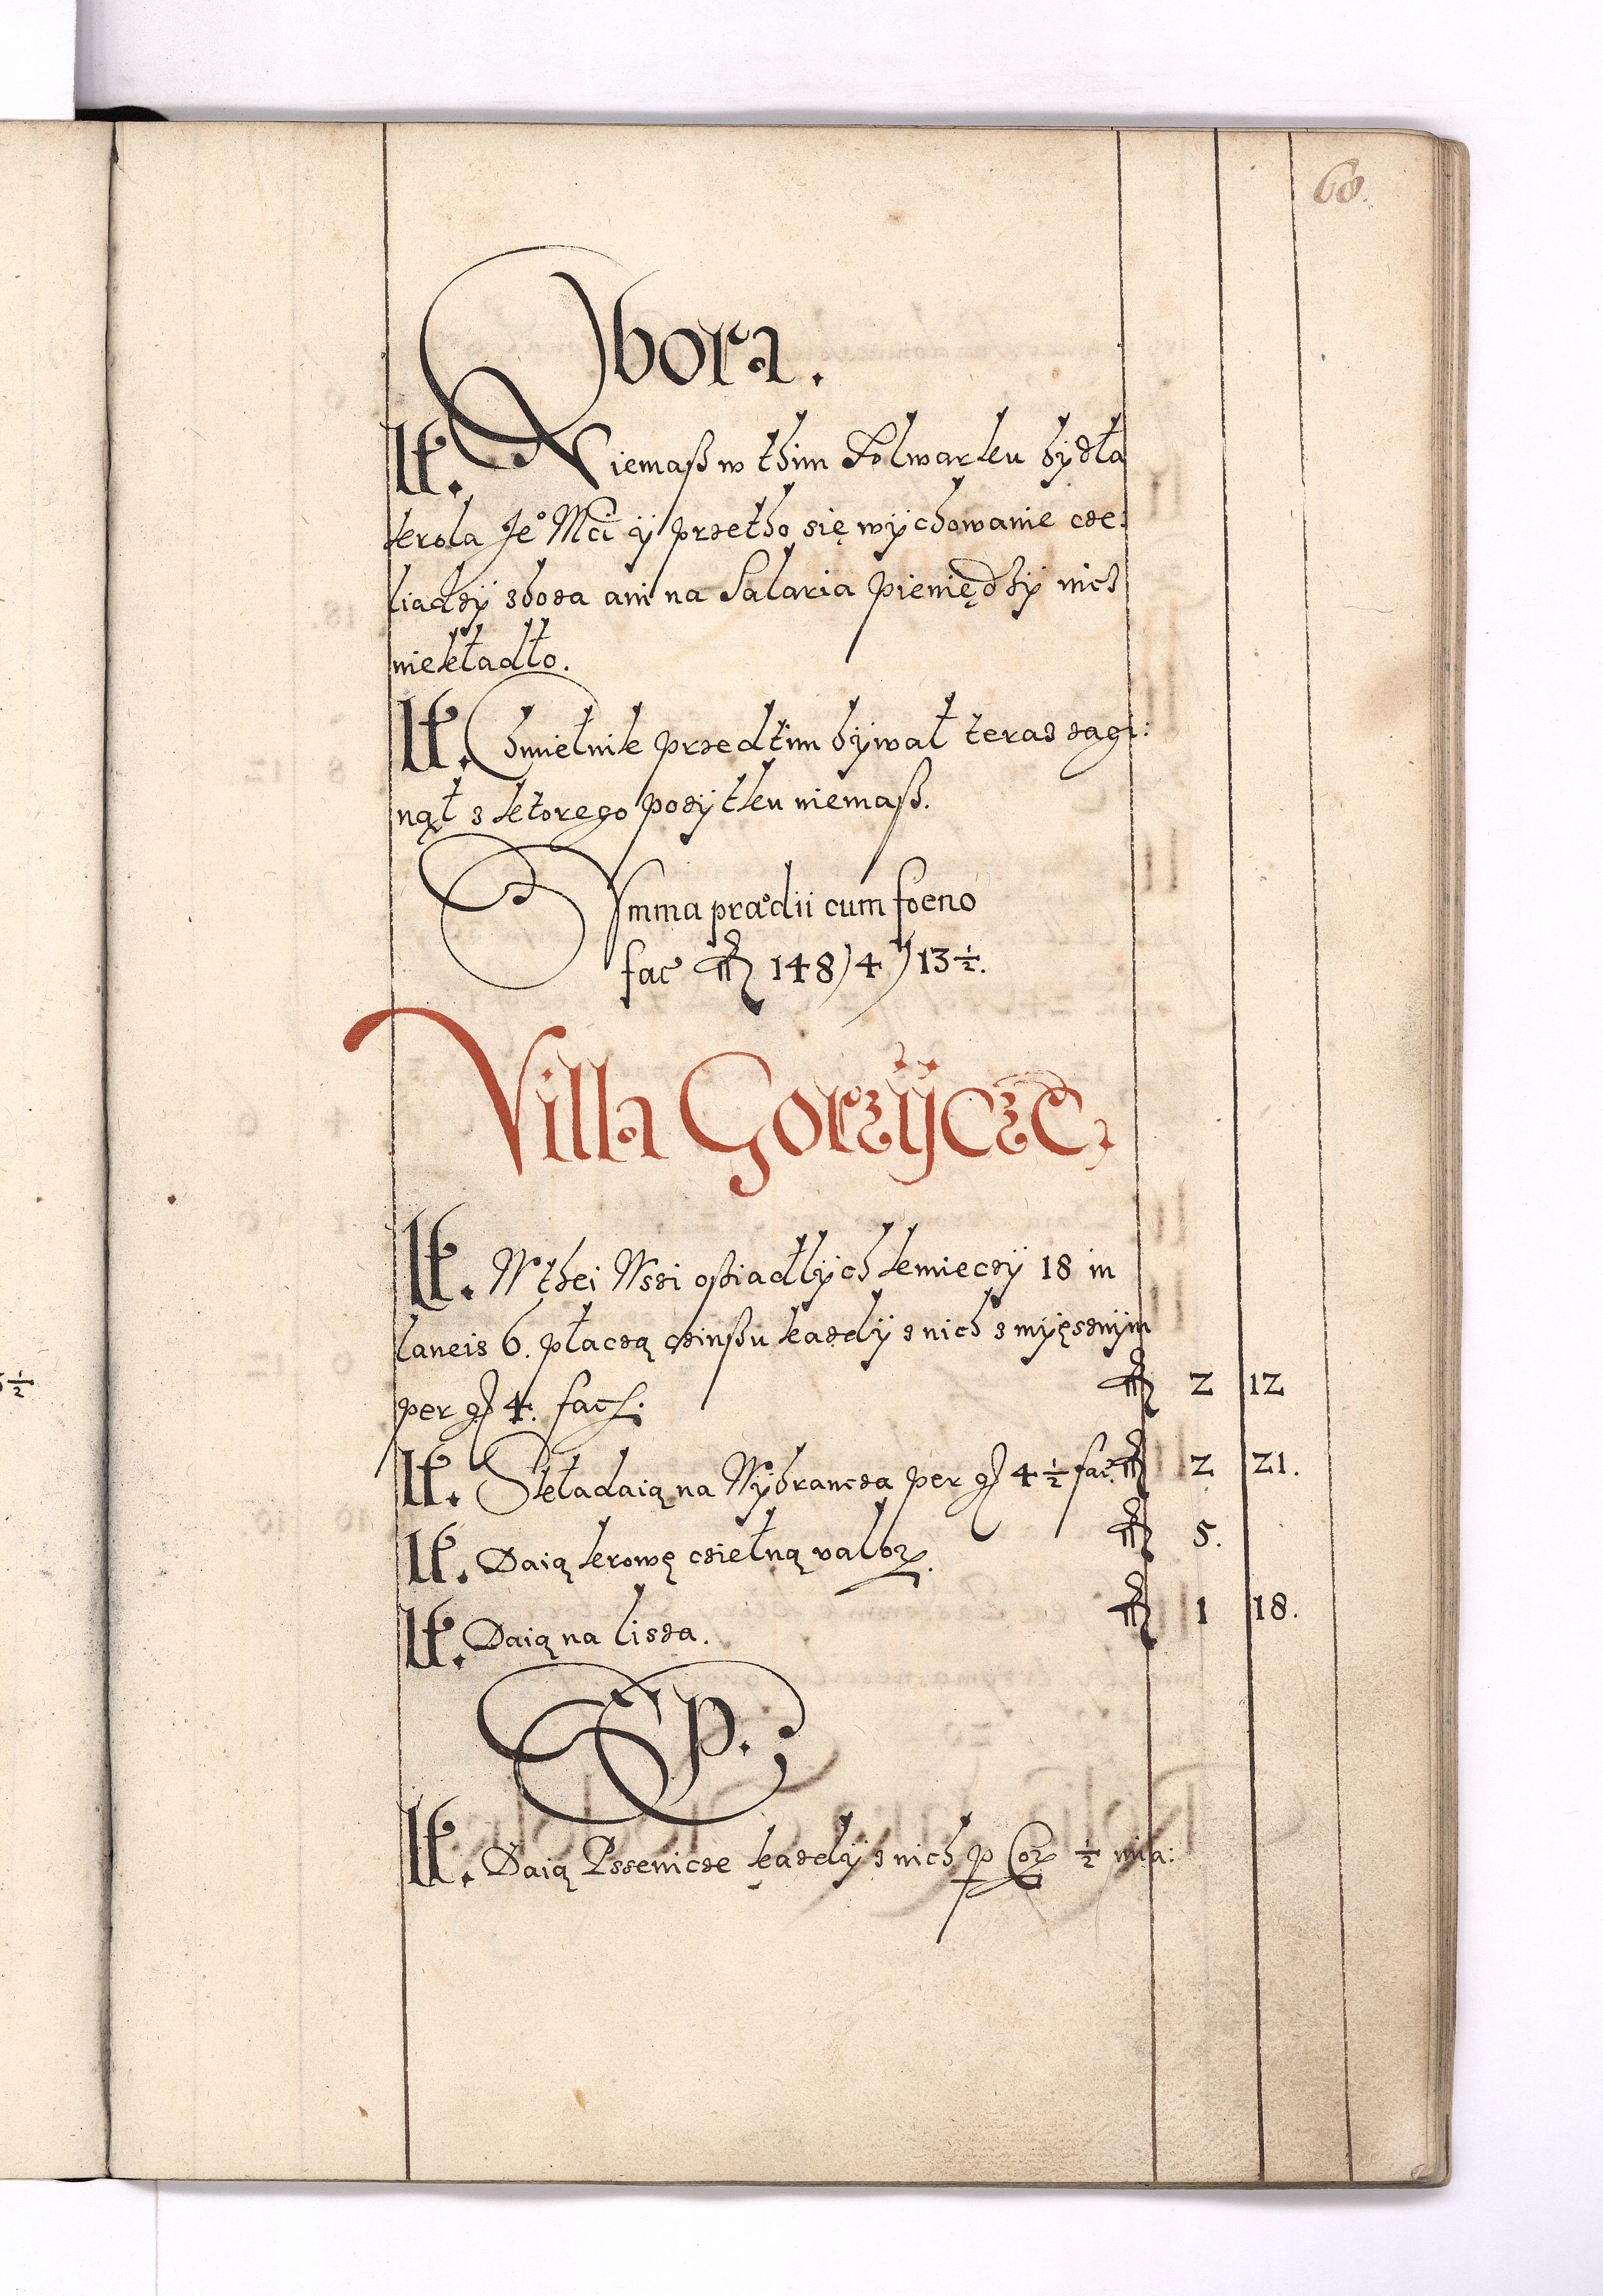 60.
Obora.
It. Niemasz w thim Folwarku bydła
krola Je° Mci y przetho się wychowanie cze:
liadzy zboza ani na Salaria pieniędzy nicz
niekładło.
It. Chmielnik przedtim bywał teraz zagi:
nął z ktorego pozytku niemasz.
Summa prædii cum foeno
fac 148 / 4 / 13 ½.
Villa Gorzÿcze.
It. W thei Wszi osziadłych kmieczy 18 in
laneis 6. płaczą czinszu kazdy z nich z myęsznym
per g 4. fac. 2 12
It. Składaią na Wybrancza per g 4 ½ fac. 2 21.
It. Daią krowę czielną valor. 5.
It. Daią na lisza. 1 18.
Sep.
It. Daią Pssenicze kazdy z nich p Cor ½ mia:
½